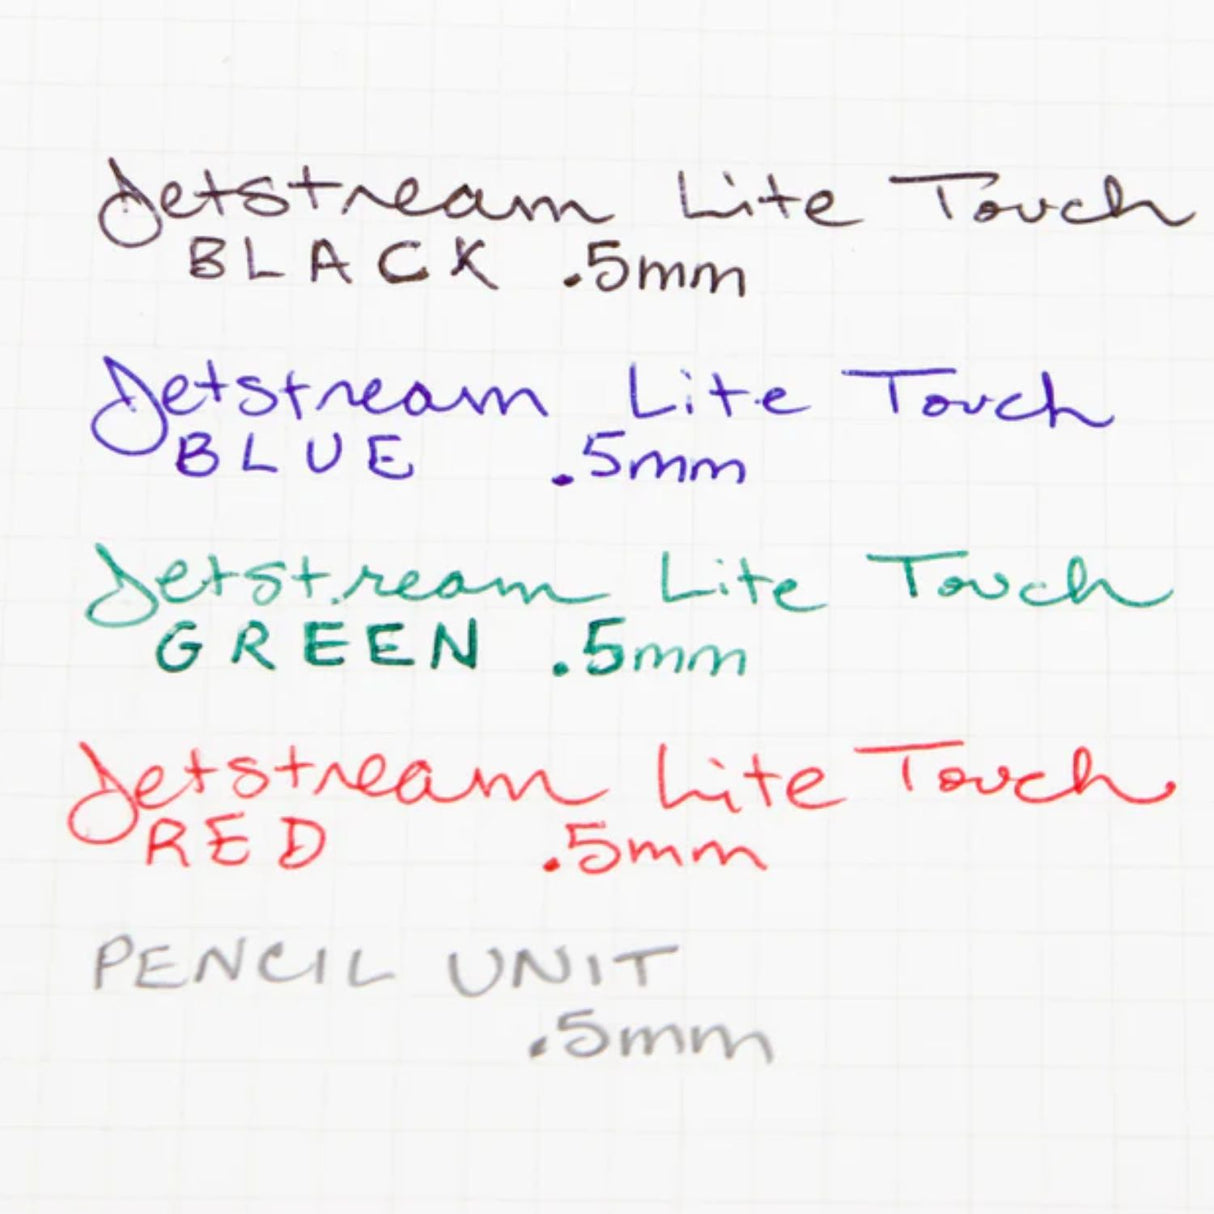 Jetstream Lite Touch
BLACK .5mm
Jetstream Lite Touch
BLUE .5mm
Jetstream Lite Touch
GREEN .5mm
Jetstream Lite Touch
RED .5mm
PENCIL UNIT
.5mm